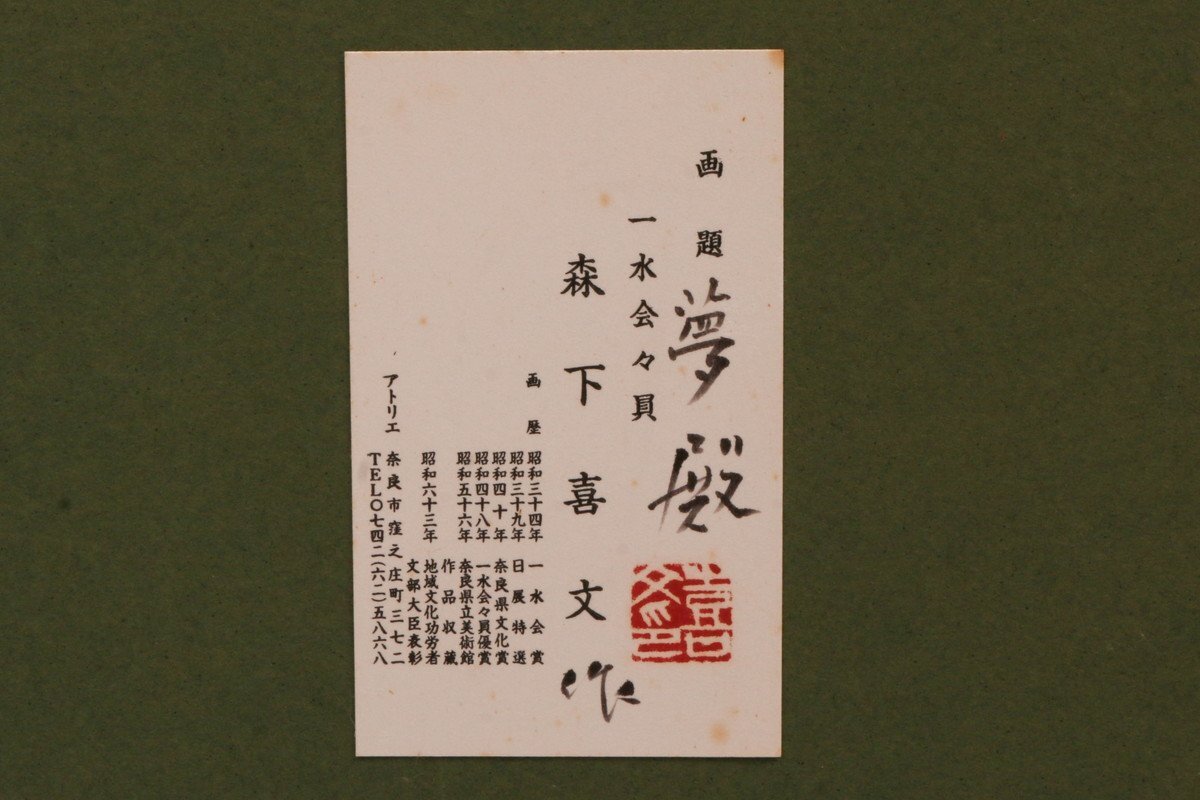 画題 夢殿
一水会々員
森下喜文作
画歴 昭和三十四年 一水会賞
昭和三十九年 日展特選
昭和四十年 奈良県文化賞
昭和四十八年 一水会々員優賞
昭和五十六年 奈良県立美術館
作品収蔵
昭和六十三年 地域文化功労者
文部大臣表彰
アトリエ 奈良市窪之庄町三七二
TEL〇七四二(六二)五八六八